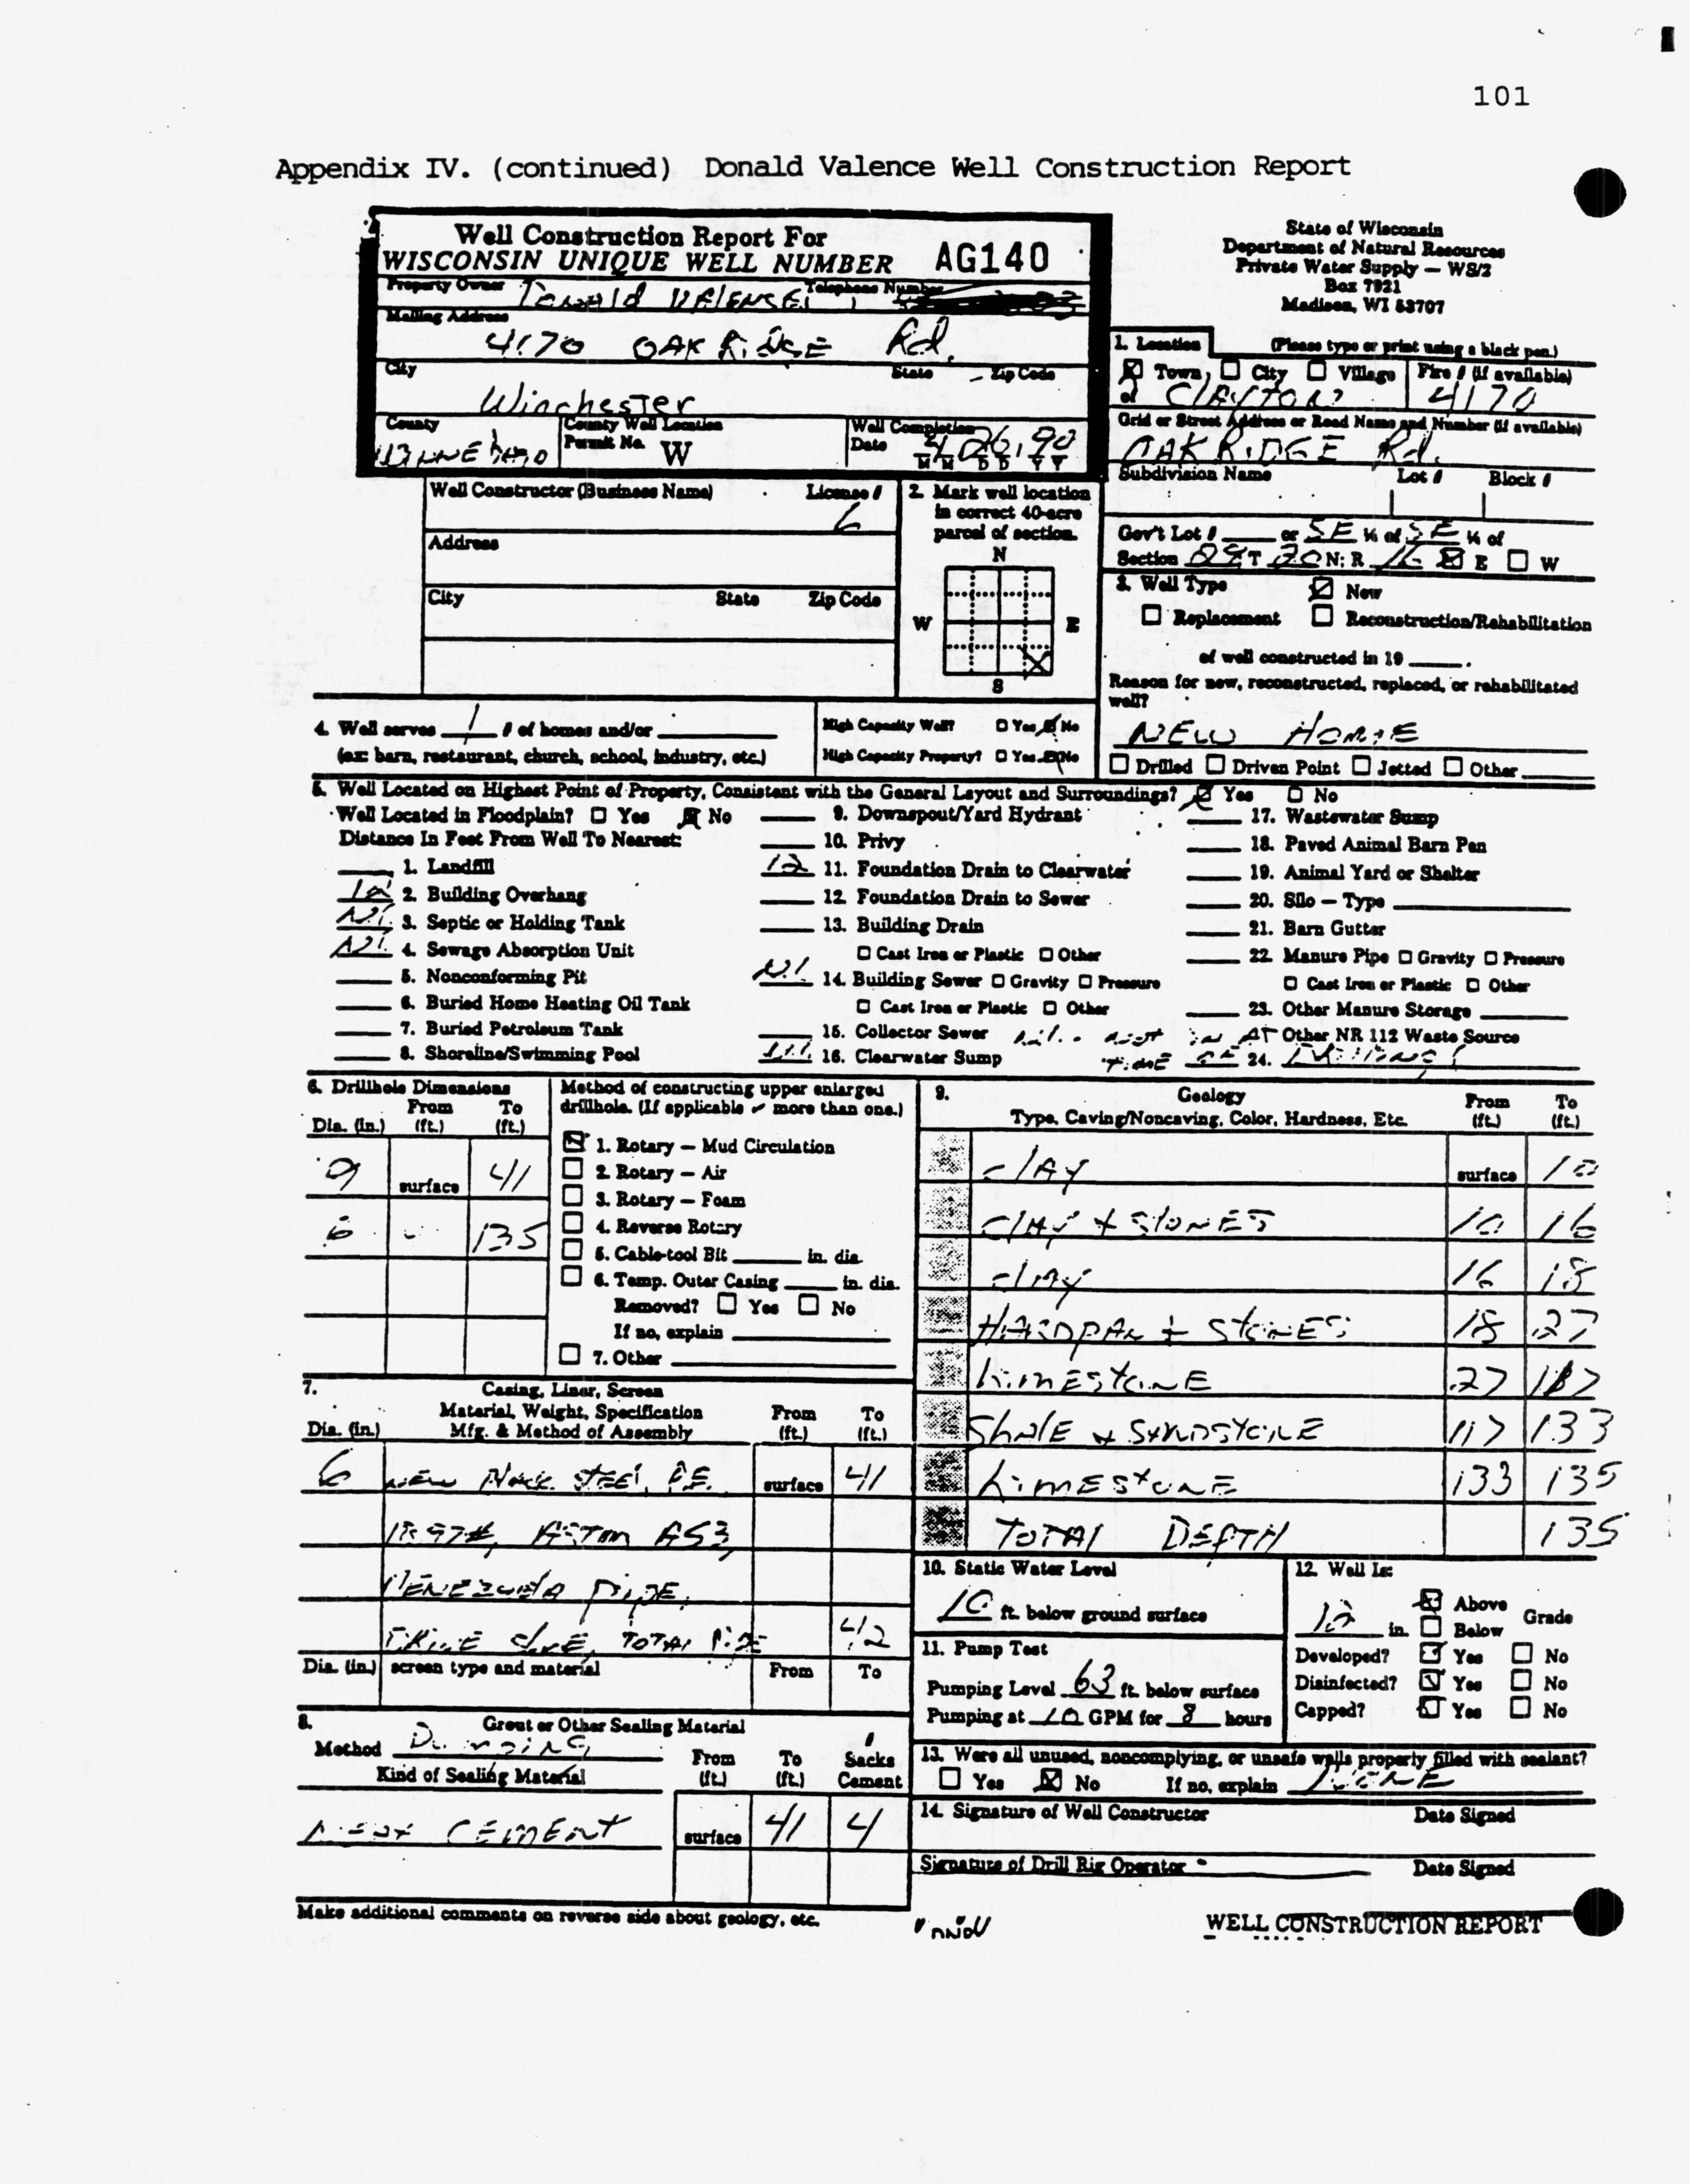 101
Appendix IV. (continued) Donald Valence Well Construction Report
Well Construction Report For
WISCONSIN UNIQUE WELL NUMBER AG140
State of Wisconsin
Department of Natural Resources
Private Water Supply — WS/2
Box 7921
Madison, WI 53707
Property Owner Telephone Number
Mailing Address
4170 OAK RIDGE Rd.
City State Zip Code
Winchester
County
County Well Location
Permit No. W
Well Completion
Date 4 26, 90
M M D D Y Y
1. Location (Please type or print using a black pen.)
Town City Village Fire # (if available)
of CLAYTON 4170
Grid or Street Address or Road Name and Number (if available)
OAK RIDGE Rd.
Subdivision Name Lot # Block #
Gov't Lot # or SE ¼ of SE ¼ of
Section T 20 N: R 16 E W
Well Constructor (Business Name) License #
6
Address
City State Zip Code
2. Mark well location
in correct 40-acre
parcel of section.
N
W E
S
3. Well Type New
Replacement Reconstruction/Rehabilitation
of well constructed in 19 .
Reason for new, reconstructed, replaced, or rehabilitated
well?
NEW HOME
Drilled Driven Point Jetted Other
4. Well serves 1 # of homes and/or
(ex: barn, restaurant, church, school, industry, etc.)
High Capacity Well? Yes No
High Capacity Property? Yes No
5. Well Located on Highest Point of Property, Consistent with the General Layout and Surroundings? Yes No
Well Located in Floodplain? Yes No
Distance In Feet From Well To Nearest:
1. Landfill
12 2. Building Overhang
3. Septic or Holding Tank
4. Sewage Absorption Unit
5. Nonconforming Pit
6. Buried Home Heating Oil Tank
7. Buried Petroleum Tank
8. Shoreline/Swimming Pool
9. Downspout/Yard Hydrant
10. Privy
12 11. Foundation Drain to Clearwater
12. Foundation Drain to Sewer
13. Building Drain
Cast Iron or Plastic Other
14. Building Sewer Gravity Pressure
Cast Iron or Plastic Other
15. Collector Sewer
16. Clearwater Sump
17. Wastewater Sump
18. Paved Animal Barn Pen
19. Animal Yard or Shelter
20. Silo — Type
21. Barn Gutter
22. Manure Pipe Gravity Pressure
Cast Iron or Plastic Other
23. Other Manure Storage
Other NR 112 Waste Source
24.
6. Drillhole Dimensions
From To
Dia. (in.) (ft.) (ft.)
9 surface 41
6 135
Method of constructing upper enlarged
drillhole. (If applicable ✓ more than one.)
1. Rotary — Mud Circulation
2. Rotary — Air
3. Rotary — Foam
4. Reverse Rotary
5. Cable-tool Bit in. dia.
6. Temp. Outer Casing in. dia.
Removed? Yes No
If no, explain
7. Other
7. Casing, Liner, Screen
Material, Weight, Specification From To
Dia. (in.) Mfg. & Method of Assembly (ft.) (ft.)
6 NEW Black STEEL, P.E. surface 41
18.97#, ASTM A53,
VENEZUELA PIPE,
DRIVE SHOE, TOTAL PIPE 42
Dia. (in.) screen type and material From To
8. Grout or Other Sealing Material
Method
Kind of Sealing Material
From (ft.) To (ft.) # Sacks Cement
NEAT CEMENT surface 41 4
Make additional comments on reverse side about geology, etc.
9. Geology
Type, Caving/Noncaving, Color, Hardness, Etc. From (ft.) To (ft.)
CLAY surface 10
CLAY + STONES 10 16
CLAY 16 18
HARDPAN + STONES 18 27
LIMESTONE 27 117
SHALE + SANDSTONE 117 133
LIMESTONE 133 135
TOTAL DEPTH 135
10. Static Water Level
10 ft. below ground surface
11. Pump Test
Pumping Level 63 ft. below surface
Pumping at 10 GPM for 8 hours
12. Well Is:
12 in. Above Below Grade
Developed? Yes No
Disinfected? Yes No
Capped? Yes No
13. Were all unused, noncomplying, or unsafe wells properly filled with sealant?
Yes No If no, explain NONE
14. Signature of Well Constructor Date Signed
Signature of Drill Rig Operator Date Signed
WELL CONSTRUCTION REPORT